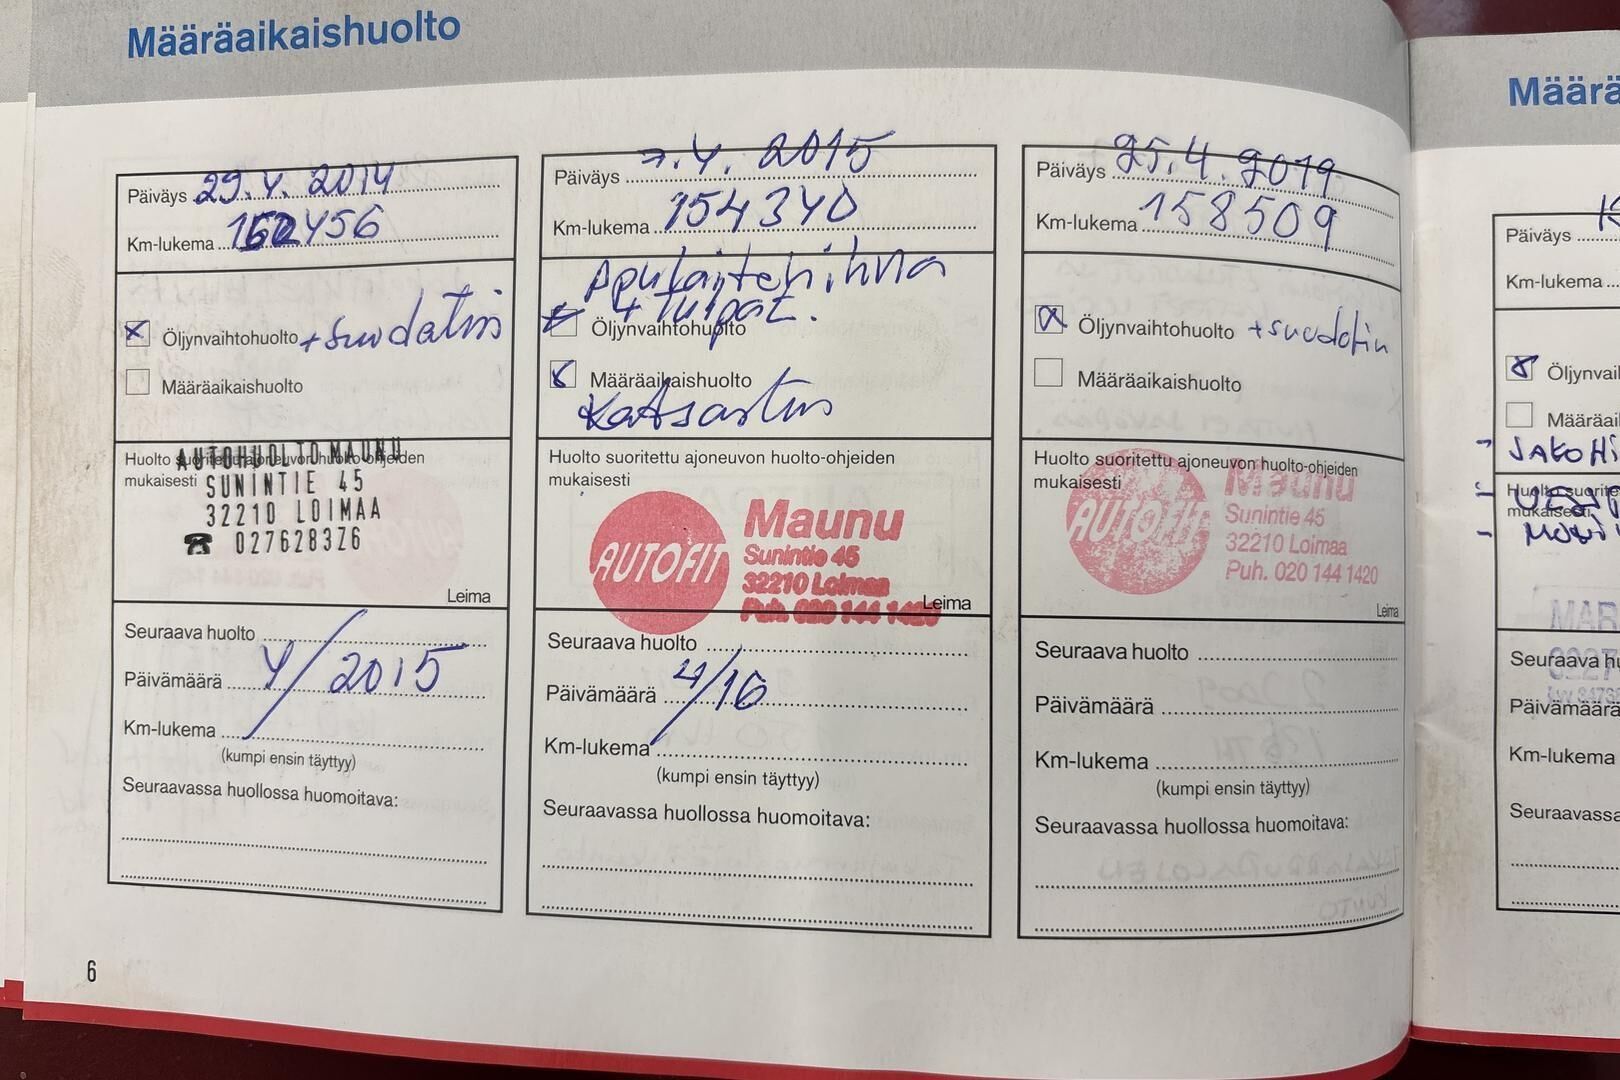 Määräaikaishuolto
Päiväys 29.4.2014
Km-lukema 152456
Öljynvaihtohuolto + suodatin
Määräaikaishuolto
Huolto suoritettu ajoneuvon huolto-ohjeiden
mukaisesti
AUTOHUOLTO MAUNU
SUNINTIE 45
32210 LOIMAA
☎ 027628326
Leima
Seuraava huolto
Päivämäärä 4/2015
Km-lukema
(kumpi ensin täyttyy)
Seuraavassa huollossa huomoitava:
Päiväys 7.4.2015
Km-lukema 154340
Apulaitehihna
+ tulpat.
Öljynvaihtohuolto
Määräaikaishuolto
Katsastus
Huolto suoritettu ajoneuvon huolto-ohjeiden
mukaisesti
AUTOFIT
Maunu
Sunintie 45
32210 Loimaa
Puh. 020 144 1420
Leima
Seuraava huolto
Päivämäärä 4/16
Km-lukema
(kumpi ensin täyttyy)
Seuraavassa huollossa huomoitava:
Päiväys 25.4.2019
Km-lukema 158509
Öljynvaihtohuolto + suodatin
Määräaikaishuolto
Huolto suoritettu ajoneuvon huolto-ohjeiden
mukaisesti
AUTOFIT
Maunu
Sunintie 45
32210 Loimaa
Puh. 020 144 1420
Leima
Seuraava huolto
Päivämäärä
Km-lukema
(kumpi ensin täyttyy)
Seuraavassa huollossa huomoitava:
6
Määrä
Päiväys
Km-lukema
Öljynvail
Määräail
- JAKOHI
Huolto suorite
mukaisesti
MAR
Seuraava hu
Päivämäärä
Km-lukema
Seuraavassa